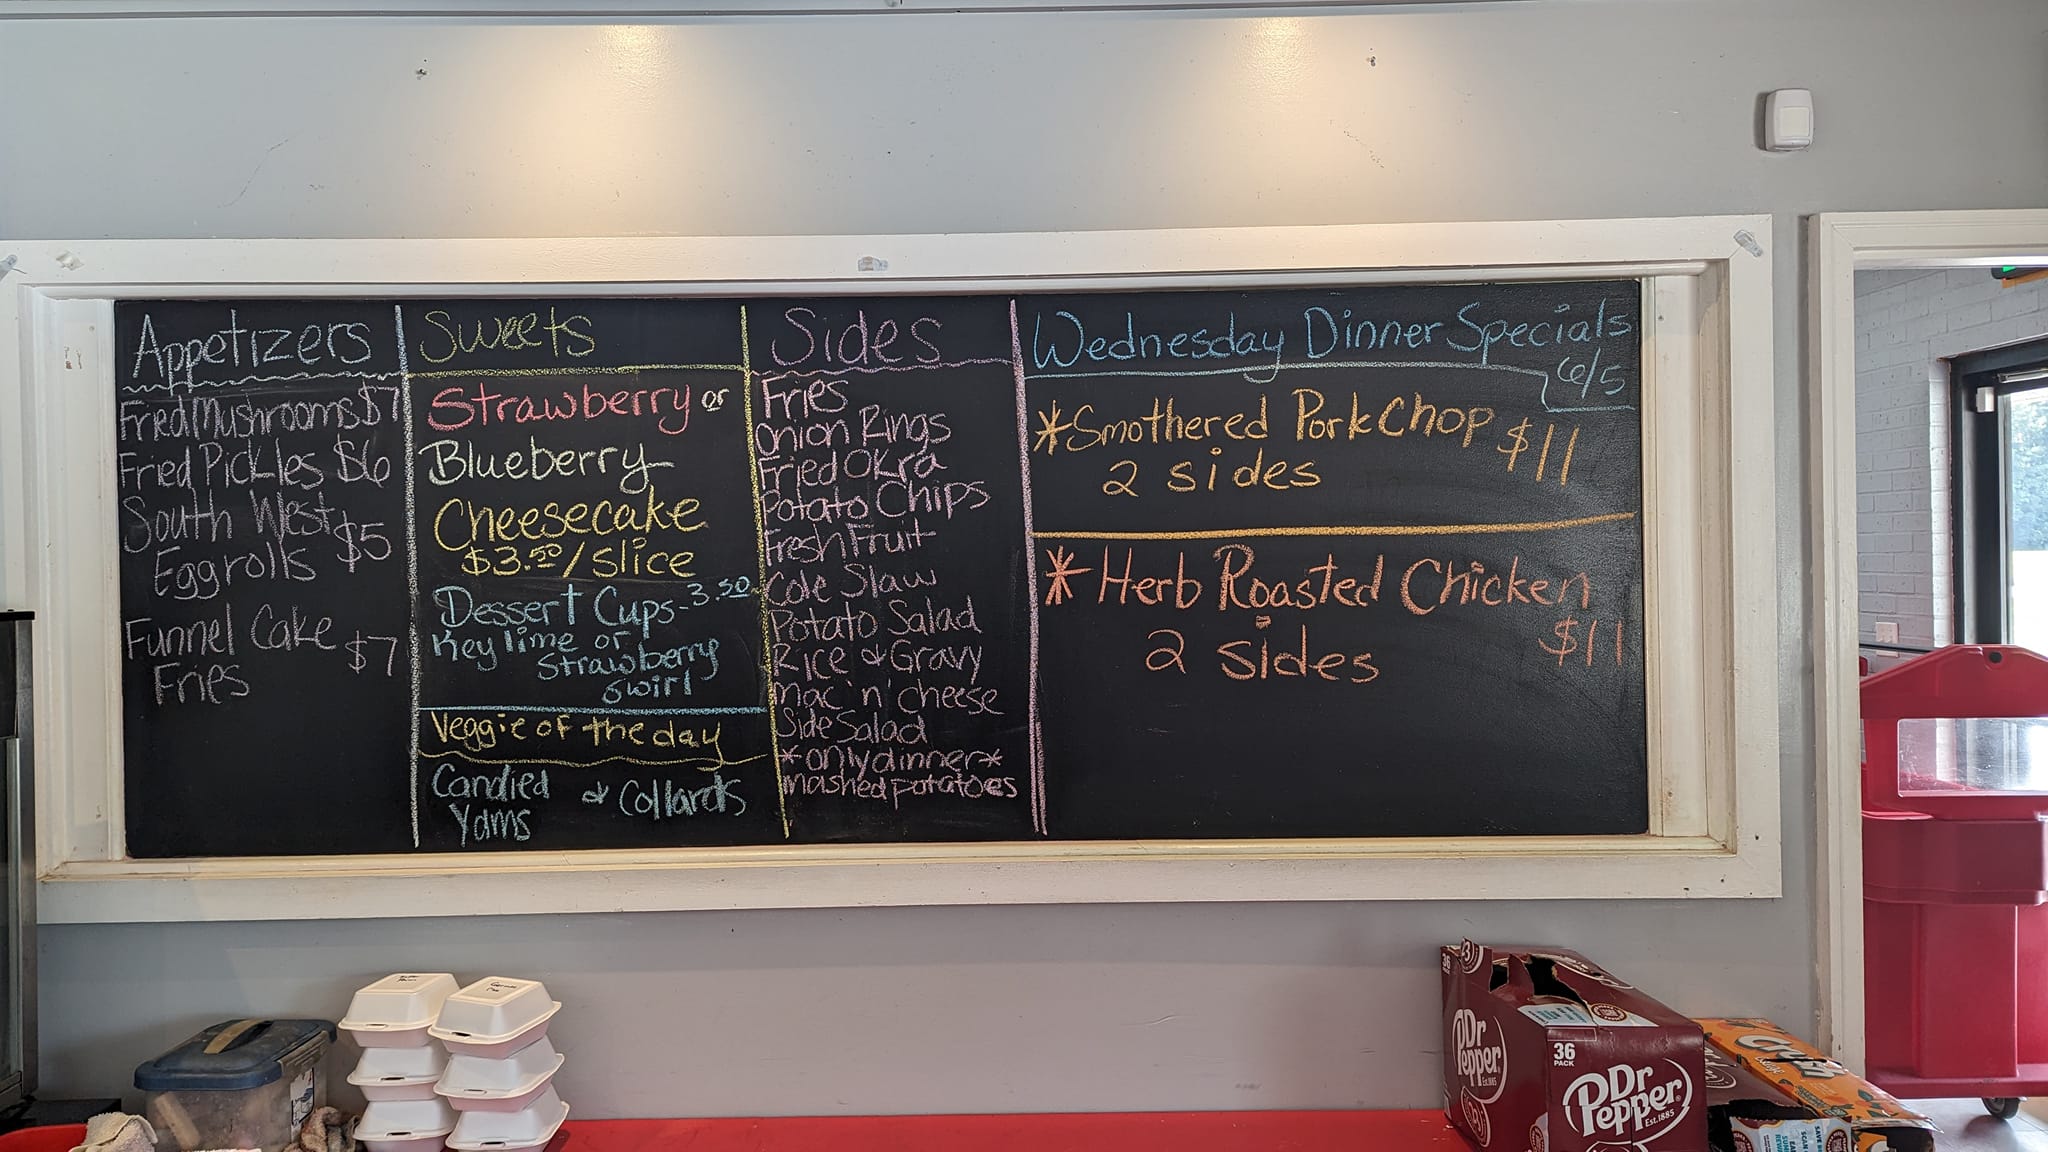 Appetizers
Fried Mushrooms $7
Fried Pickles $6
South West
Eggrolls $5
Funnel Cake
Fries $7
Sweets
Strawberry or
Blueberry
Cheesecake
$3.50/slice
Dessert Cups-3.50
Key lime or
Strawberry
swirl
Veggie of the day
Candied & Collards
Yams
Sides
Fries
Onion Rings
Fried Okra
Potato Chips
Fresh Fruit
Cole Slaw
Potato Salad
Rice & Gravy
mac 'n' cheese
Side Salad
*only dinner*
mashed potatoes
Wednesday Dinner Specials
6/5
*Smothered Pork Chop $11
2 sides
*Herb Roasted Chicken
$11
2 sides
German
Dr
Pepper
Est. 1885
36
PACK
Dr
Pepper
Est. 1885
Crush